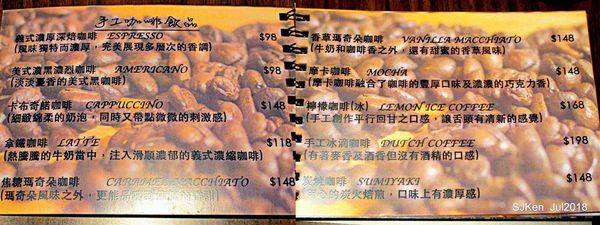 手工咖啡飲品
義式濃厚深焙咖啡 ESPRESSO $98
(風味獨特而濃厚，完美展現多層次的香調)
美式濃黑濃烈咖啡 AMERICANO $98
(淡淡憂香的美式黑咖啡)
卡布奇諾咖啡 CAPPUCCINO $148
(細緻綿柔的奶泡，同時又帶點微微的刺激感)
拿鐵咖啡 LATTE $118
(熱騰騰的牛奶當中，注入滑順濃郁的義式濃縮咖啡)
焦糖瑪奇朵咖啡 CARAMEL MACCHIATO $148
(瑪奇朵風味之外，更能品
香草瑪奇朵咖啡 VANILLA MACCHIATO $148
(牛奶和咖啡香之外，還有甜蜜的香草風味)
摩卡咖啡 MOCHA $148
(摩卡咖啡融合了咖啡的豐厚口味及濃濃的巧克力香)
檸檬咖啡(冰) LEMON ICE COFFEE $168
(手工創作平行回甘之口感，讓舌頭有清新的感覺)
手工冰滴咖啡 DUTCH COFFEE $198
(有著麥香及酒香但沒有酒精的口感)
炭燒咖啡 SUMIYAKI $148
心的炭火焙煎，口味上有濃厚感)
SJKen Jul2018